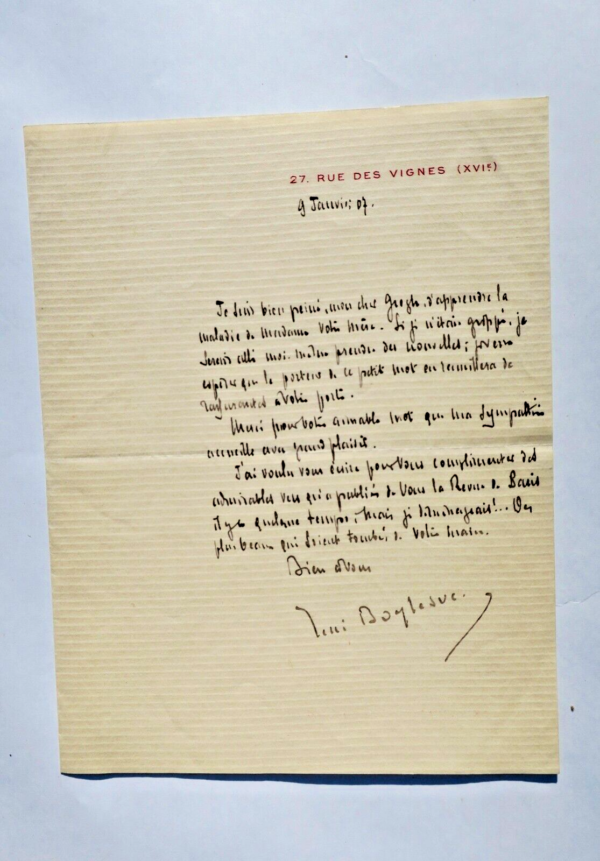 27. RUE DES VIGNES (XVIe)
9 Janvier 07.
Je suis bien peiné, mon cher Gregh, d'apprendre la
maladie de Madame votre mère. Si je n'étais grippé, je
serais allé moi-même prendre des nouvelles; je veux
espérer que le porteur de ce petit mot en recueillera de
rassurantes à votre porte.
Merci pour votre aimable mot que ma sympathie
accueille avec grand plaisir.
J'ai voulu vous écrire pour vous complimenter des
admirables vers qu'a publiés de vous la Revue de Paris
il y a quelque temps; mais je déménageais!.. Des
plus beaux qui soient tombés de votre main.
Bien à vous
René Boylesve.